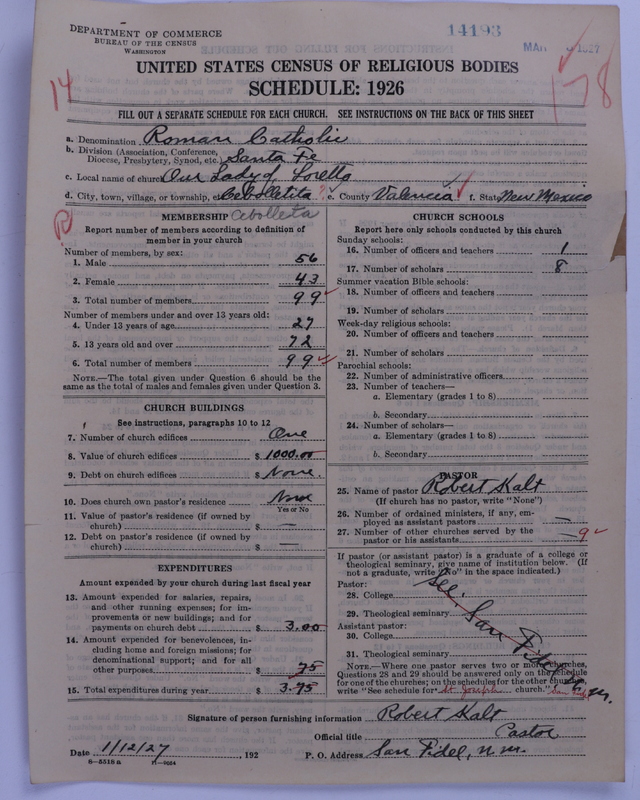 DEPARTMENT OF COMMERCE
BUREAU OF THE CENSUS
WASHINGTON
14193
MAR 1927
UNITED STATES CENSUS OF RELIGIOUS BODIES
SCHEDULE: 1926
14
178
FILL OUT A SEPARATE SCHEDULE FOR EACH CHURCH. SEE INSTRUCTIONS ON THE BACK OF THIS SHEET
a. Denomination Roman Catholic
b. Division (Association, Conference, Diocese, Presbytery, Synod, etc.) Santa Fe
c. Local name of church Our Lady of Loretto
d. City, town, village, or township, Cebolletita e. County Valencia f. State New Mexico
R
MEMBERSHIP Cebolleta
Report number of members according to definition of
member in your church
Number of members, by sex:
1. Male 56
2. Female 43
3. Total number of members 99
Number of members under and over 13 years old:
4. Under 13 years of age 27
5. 13 years old and over 72
6. Total number of members 99
NOTE.—The total given under Question 6 should be the
same as the total of males and females given under Question 3.
CHURCH BUILDINGS
See instructions, paragraphs 10 to 12
7. Number of church edifices One
8. Value of church edifices $ 1000.00
9. Debt on church edifices $ None.
10. Does church own pastor's residence
Yes or No
11. Value of pastor's residence (if owned by
church) $ —
12. Debt on pastor's residence (if owned by
church) $ —
EXPENDITURES
Amount expended by your church during last fiscal year
13. Amount expended for salaries, repairs,
and other running expenses; for im-
provements or new buildings; and for
payments on church debt $ 3.00
14. Amount expended for benevolences, in-
cluding home and foreign missions; for
denominational support; and for all
other purposes $ 75
15. Total expenditures during year $ 3.75
CHURCH SCHOOLS
Report here only schools conducted by this church
Sunday schools:
16. Number of officers and teachers 1
17. Number of scholars 8
Summer vacation Bible schools:
18. Number of officers and teachers
19. Number of scholars
Week-day religious schools:
20. Number of officers and teachers
21. Number of scholars
Parochial schools:
22. Number of administrative officers
23. Number of teachers—
a. Elementary (grades 1 to 8)
b. Secondary
24. Number of scholars—
a. Elementary (grades 1 to 8)
b. Secondary
PASTOR
25. Name of pastor Robert Kalt
(If church has no pastor, write "None")
26. Number of ordained ministers, if any, em-
ployed as assistant pastors —
27. Number of other churches served by the
pastor or his assistants 9
If pastor (or assistant pastor) is a graduate of a college or
theological seminary, give name of institution below. (If
not a graduate, write "No" in the space indicated.)
Pastor:
28. College
29. Theological seminary
Assistant pastor:
30. College
31. Theological seminary
See San Fidel N.M.
NOTE.—Where one pastor serves two or more churches,
Questions 28 and 29 should be answered only on the schedule
for one of the churches; on the schedules for the other churches
write "See schedule for St Joseph church." San Fidel
Signature of person furnishing information Robert Kalt
Official title Pastor
Date 1/12/27, 192 P. O. Address San Fidel, N.M.
8—5518 a